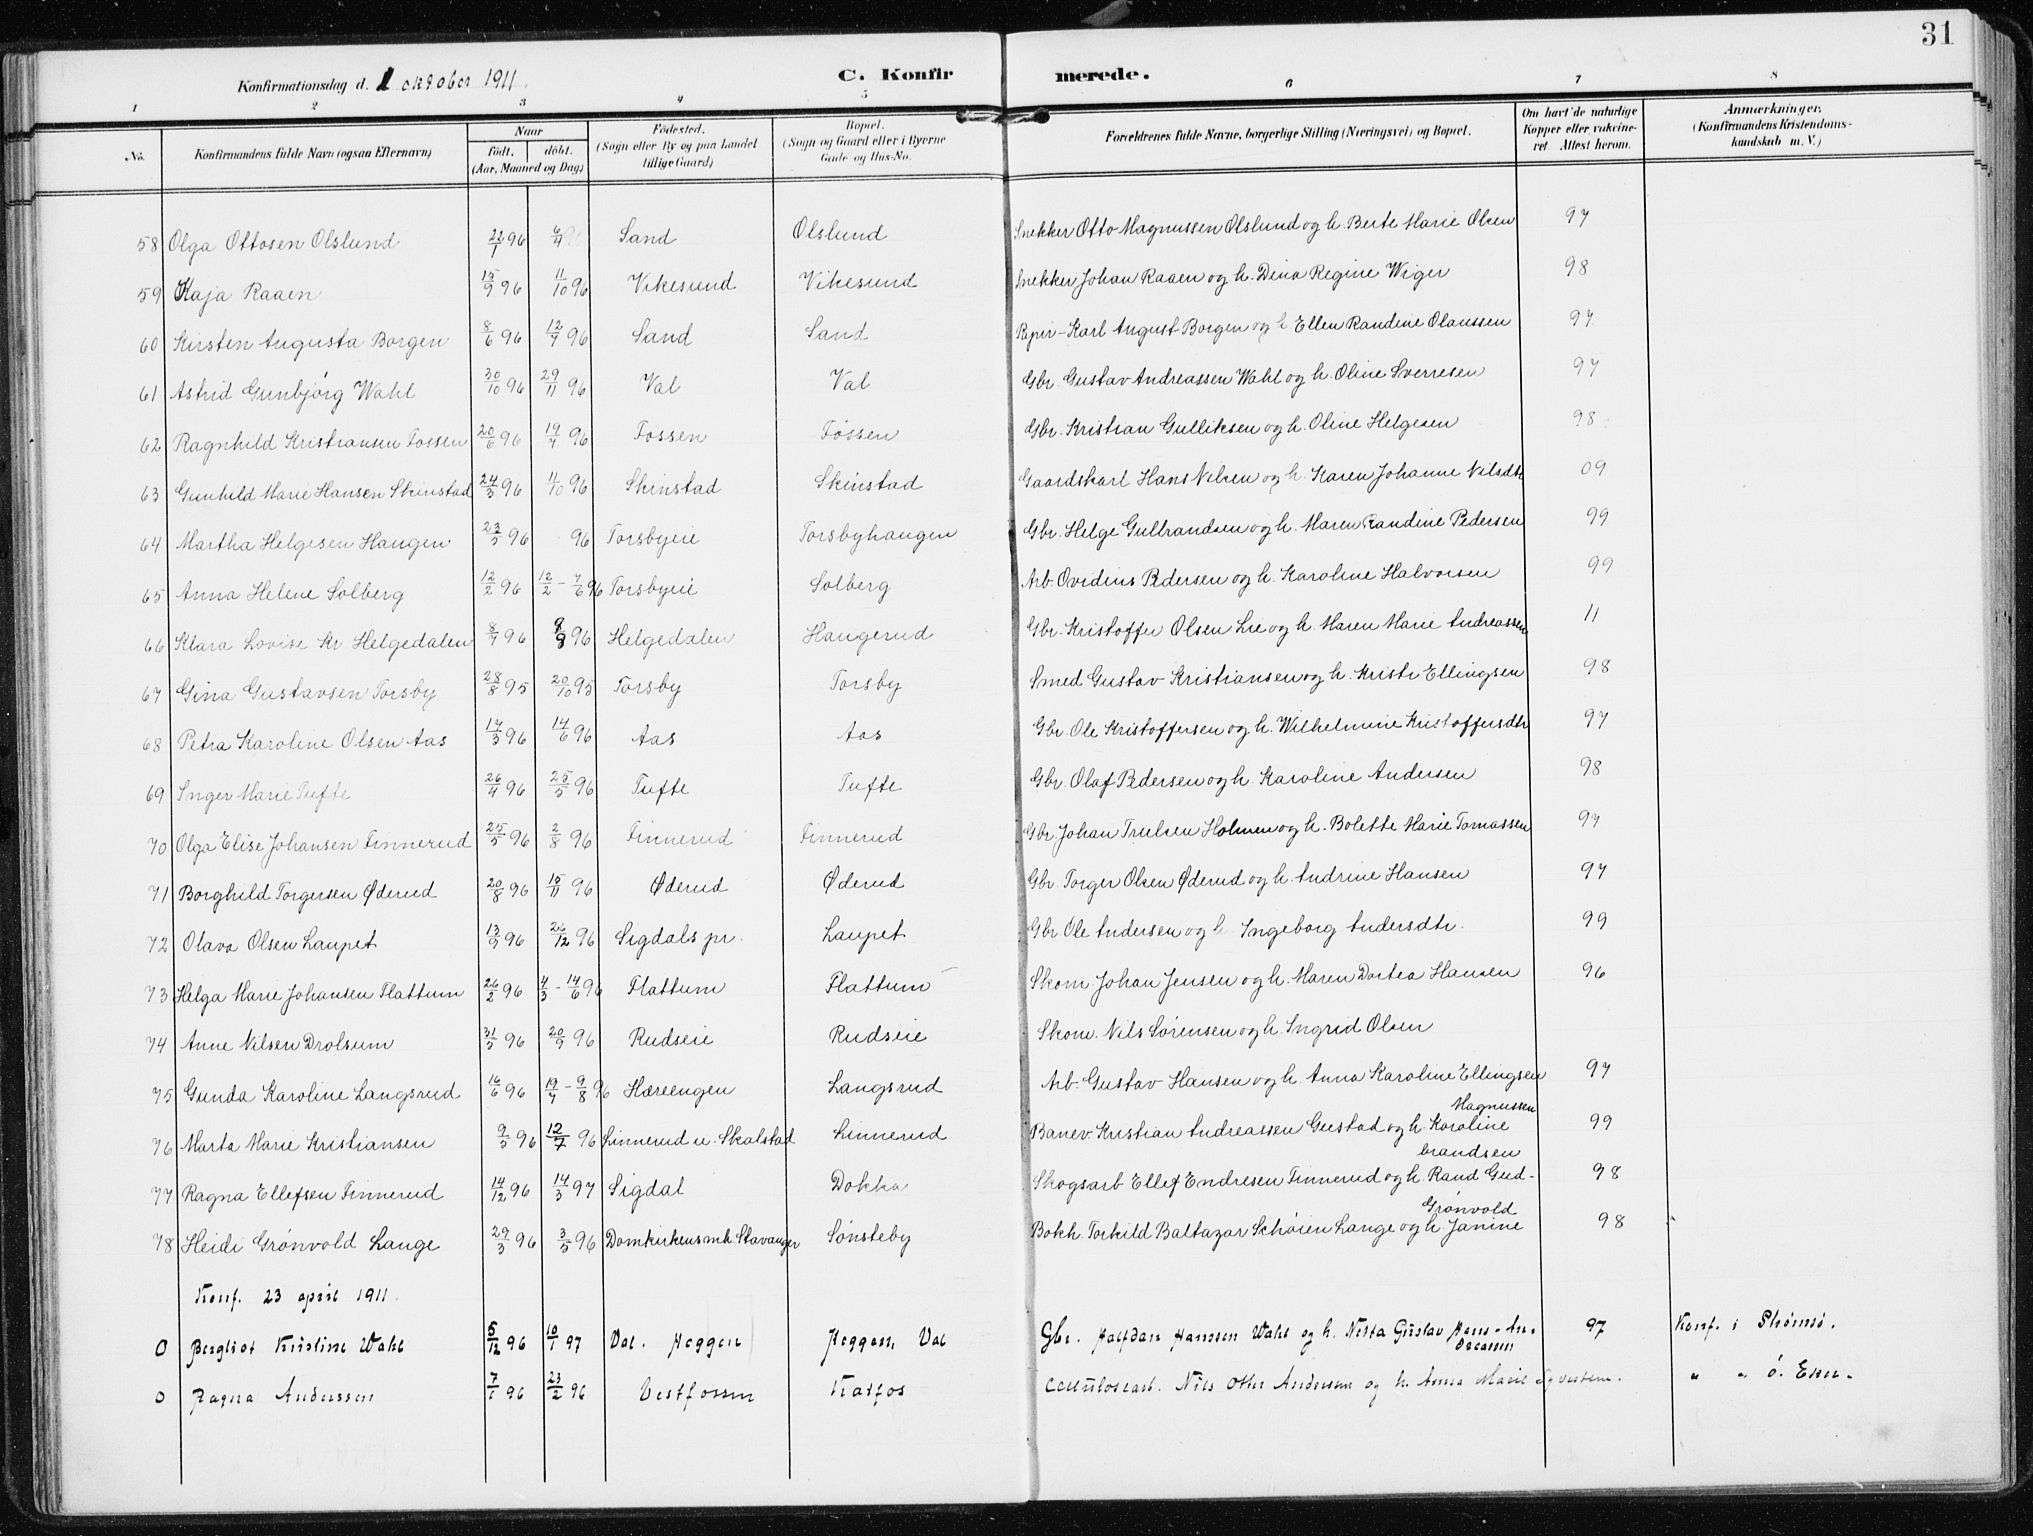 31
Konfirmationsdag d. 1 oktober 1911. C. Konfirmerede.
1 2 3 4 5 6 7 8
No. Konfirmandens fulde Navn (ogsaa Efternavn) Naar født. døbt. (Aar, Maaned og Dag) Fødested. (Sogn eller By og paa Landet tillige Gaard) Bopæl. (Sogn og Gaard eller i Byerne Gade og Hus-No. Forældrenes fulde Navne, borgerlige Stilling (Næringsvei) og Bopæl. Om havt de naturlige Kopper eller vakcineret. Attest herom. Anmærkninger. (Konfirmandens Kristendomskundskab m. V.)
58 Olga Ottosen Olslund 22/1 96 6/4 96 Sand Olslund Snekker Otto Magnussen Olslund og h. Berte Marie Olsen 97
59 Kaja Raaen 15/9 96 11/10 96 Vikesund Vikesund Snekker Johan Raaen og h. Dina Regine Wiger 98
60 Kirsten Augusta Borgen 8/6 96 12/7 96 Sand Sand Papir-Karl August Borgen og h Ellen Randine Olaussen 97
61 Astrid Gunbjørg Wahl 30/10 96 29/11 96 Val Val Gbr. Gustav Andreassen Wahl og h. Oline Sverresen 97
62 Ragnhild Kristiansen Fossen 20/6 96 19/7 96 Fossen Fossen Gbr. Kristian Gulliksen og h. Oline Helgesen 98
63 Gunhild Marie Hansen Skinstad 24/3 96 11/10 96 Skinstad Skinstad Gaardskarl Hans Nilsen og h. Karen Johanne Nilsdtr 09
64 Martha Helgesen Haugen 23/5 96 96 Torsbyeie Torsbyhaugen Gbr. Helge Gulbrandsen og h. Maren Randine Pedersen 99
65 Anna Helene Solberg 12/2 96 12/2 - 7/6 96 Torsbyeie Solberg Arb. Ovidius Pedersen og h. Karoline Halvorsen 99
66 Klara Lovise Kr Helgedalen 8/7 96 8/8 96 Helgedalen Haugerud Gbr. Kristoffer Olsen Lie og h. Maren Marie Andreassen 11
67 Gina Gustavsen Torsby 28/8 95 20/10 95 Torsby Torsby Smed Gustav Kristiansen og h. Kristi Ellingsen 98
68 Petra Karoline Olsen Aas 17/3 96 14/6 96 Aas Aas Gbr. Ole Kristoffersen og h. Wilhelmine Kristoffersdtr 97
69 Inger Marie Tufte 26/4 96 25/5 96 Tufte Tufte Gbr. Olaf Pedersen og h. Karoline Andersen 98
70 Olga Elise Johansen Finnerud 25/5 96 2/8 96 Finnerud Finnerud Gbr. Johan Truelsen Holmen og h. Bolette Marie Tomassen 97
71 Borghild Torgersen Øderud 20/8 96 15/11 96 Øderud Øderud Gbr. Torger Olsen Øderud og h. Andrine Hansen 97
72 Olava Olsen Laupet 13/9 96 26/12 96 Sigdals pr. Laupet Gbr Ole Andersen og h. Ingeborg Andersdtr. 99
73 Helga Marie Johansen Flattum 26/2 96 4/3 - 14/6 96 Flattum Flattum Skom. Johan Jensen og h. Maren Dortea Hansen 96
74 Anne Nilsen Drolsum 31/5 96 20/9 96 Rudseie Rudseie Skom. Nils Sørensen og h. Ingrid Olsen
75 Gunda Karoline Langsrud 16/6 96 19/7 - 9/8 96 Hæreengen Langsrud Arb. Gustav Hansen og h. Anna Karoline Ellingsen 97
76 Marta Marie Kristiansen 9/3 96 12/7 96 Linnerud u. Skalstad Linnerud Banev. Kristian Andreassen Gustad og h. Karoline Magnussen 99
77 Ragna Ellefsen Finnerud 14/12 96 14/3 97 Sigdal Dokka Skogsarb Ellef Endresen Finnerud og h. Rand Gudbrandsen 98
78 Heidi Grønvold Lange 29/3 96 3/5 96 Domkirkens mh Stavanger Sønsteby Bokh. Torkild Baltazar Schøien Lange og h. Janine Grønvold 98
Konf. 23 april 1911.
0 Bergliot Kristine Wahl 5/12 96 10/1 97 Val. Heggen Heggen, Val Gbr. Halfdan Hanssen Wahl og h. 97 Konf. i Strømsø.
0 Ragna Anderssen 7/1 96 23/2 96 Vestfossen Katfos Nils Otter Andersen og h. Anna Marie " " ø. Eker.